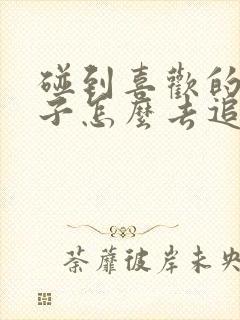 碰到喜歡的
子怎麼去追
荼蘼彼岸未央